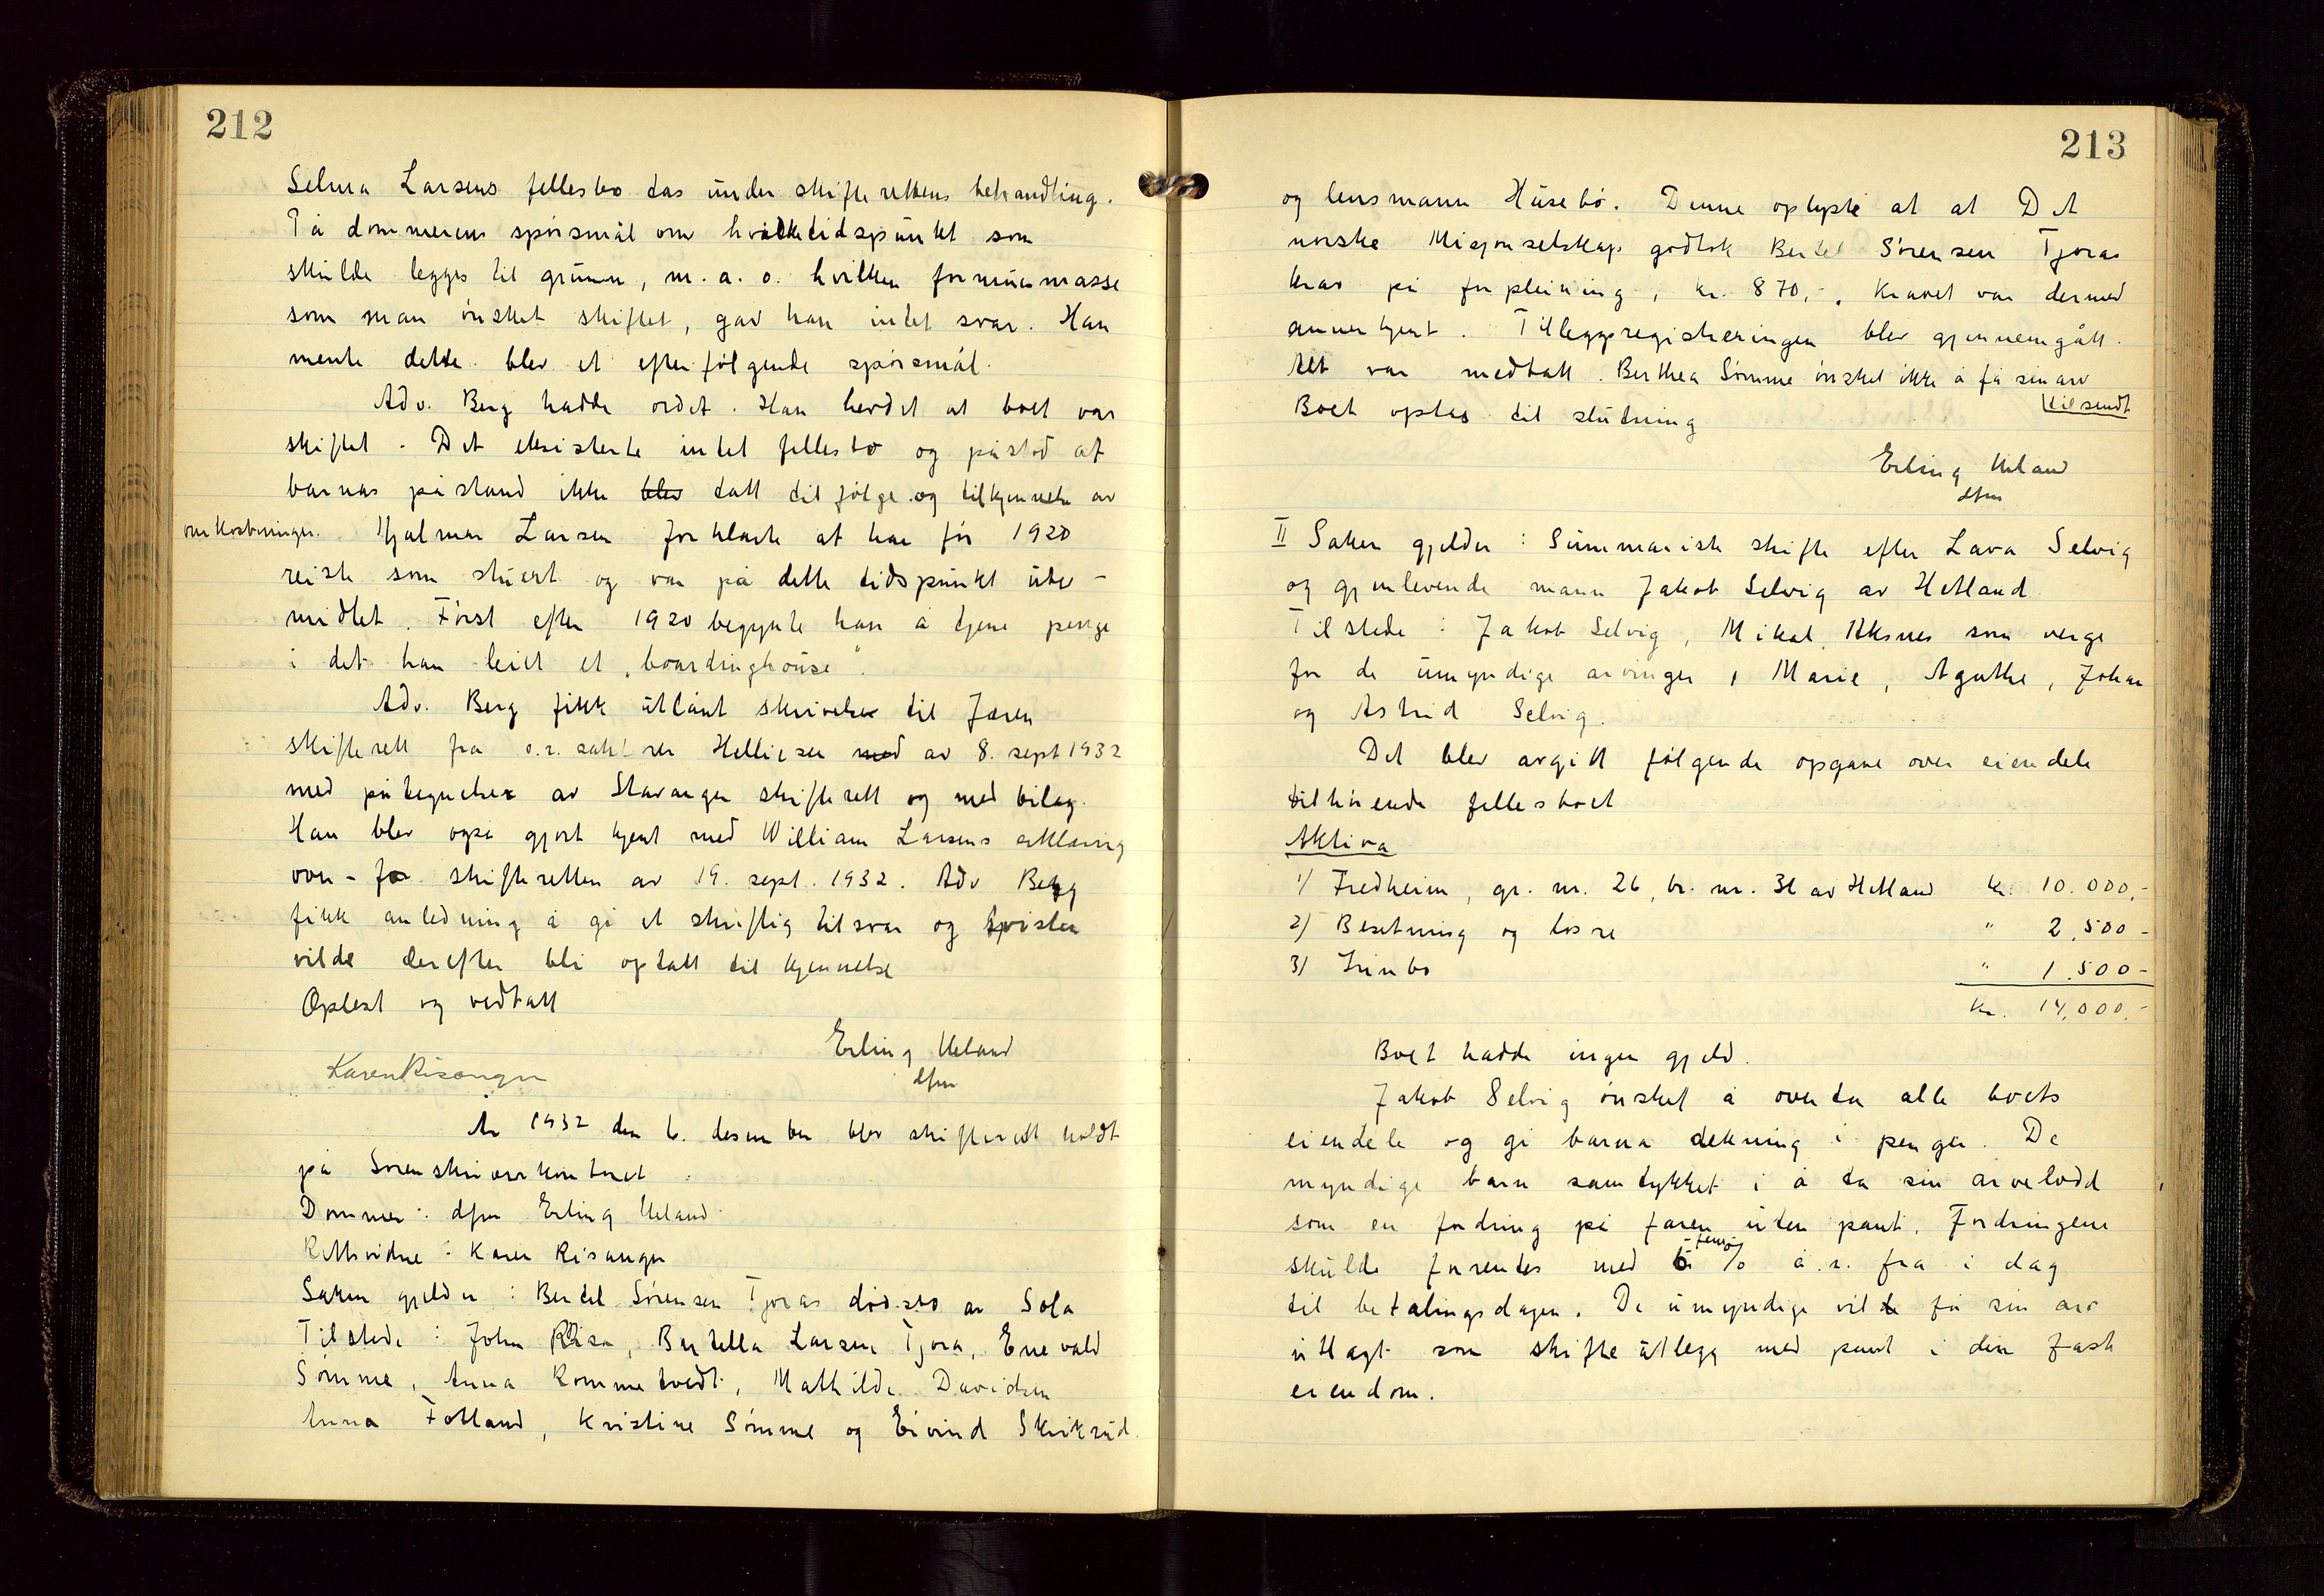 212
Selma Larsens fellesbo tas under skifterettens behandling.
På dommerens spørsmål om hvilket tidspunkt som
skulde legges til grunn, m. a. o. hvilken formuesmasse
som man ønsket skiftet, gav han intet svar. Han
mente dette blev et efterfølgende spørsmål.
Adv. Berg hadde ordet. Han hevdet at boet var
skiftet. Det eksisterte intet fellesbo og påstod at
barnas påstand ikke blev tatt til følge og tilkjennelse av
omkostninger. Hjalmar Larsen forklarte at han før 1920
reiste som stuert og var på dette tidspunkt ube-
midlet. Først efter 1920 begynte han å tjene penge
i det han leiet et „boardinghouse".
Adv. Berg fikk utlånt skrivelse til Jæren
skifterett fra o.r. sakfører Helliesen med av 8. sept 1932
med påtegnelse av Stavanger skifterett og med bilag.
Han blev også gjort kjent med William Larsens erklæring
oven-for skifteretten av 19. sept. 1932. Adv Berg
fikk anledning å gi et skriftlig tilsvar og tvisten
vilde derefter bli optatt til kjennelse
Oplest og vedtatt
Erling Ueland
dfm
Karen Risanger
År 1932 den 6. desember blev skifterett holdt
på Sorenskriverkontoret
Dommer: dfm Erling Ueland
Rettsvidne: Karen Risanger
Saken gjelder: Bertel Sørensen Tjoras dødsbo av Sola
Tilstede: John Risa, Bertella Larsen Tjora, Enevald
Sømme, Anna Kommetvedt, Mathilde Davidsen
Anna Folland, Kristine Sømme og Eivind Skriksrud
213
og lensmann Husebø. Denne oplyste at at Det
norske Misjonselskap godtok Bertel Sørensen Tjoras
krav på forpleining, kr. 870,-. Kravet var dermed
annerkjent. Tilleggsregistreringen blev gjennemgått.
Alt var medtatt. Berthea Sømme ønsket ikke å få sin arv
tilsendt
Boet optas til slutning
Erling Ueland
dfm
II Saken gjelder: Summarisk skifte efter Lava Selvig
og gjenlevende mann Jakob Selvig av Hetland.
Tilstede: Jakob Selvig, Mikal Aksnes som verge
for de umyndige arvinger, Marie, Agathe, Johan
og Astrid Selvig.
Det blev avgitt følgende opgave over eiendele
tilhørende fellesboet
Aktiva
1) Fredheim, gr. nr. 26, br. nr. 31 av Hetland kr. 10.000,-
2) Besetning og løsøre " 2.500-
3) Innbo " 1.500-
kr. 14,000.-
Boet hadde ingen gjeld.
Jakob Selvig ønsket å overta alle boets
eiendele og gi barna dekning i penger. De
myndige barn samtykket i å ta sin arvelodd
som en fordring på faren uten pant. Fordringene
skulde forrentes med 5 -fem- % å.r. fra i dag
til betalingsdagen. De umyndige vilde få sin arv
utlagt som skifteutlegg med pant i den faste
eiendom.